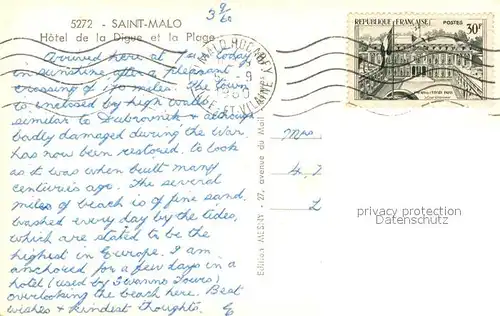 5272 - SAINT-MALO
Hôtel de la Digue et la Plage
Arrived here at 7 a.m. today
in sunshine after a pleasant
crossing of 170 miles. The town
is enclosed by high walls
similar to Dubrovnik & although
badly damaged during the war,
has now been restored, to look
as it was when built many
centuries ago. The several
miles of beach is of fine sand,
washed every day by the tides,
which are stated to be the
highest in Europe. I am
anchored for a few days in a
hotel (used by Swanns Tours)
overlooking the beach here. Best
wishes & kindest thoughts.
ILLE-ET-VILAINE
REPUBLIQUE FRANÇAISE
POSTES
30F
Mrs
L
Edition MESNY - 27, avenue du
privacy protection
AnsichtskartenVersand.com